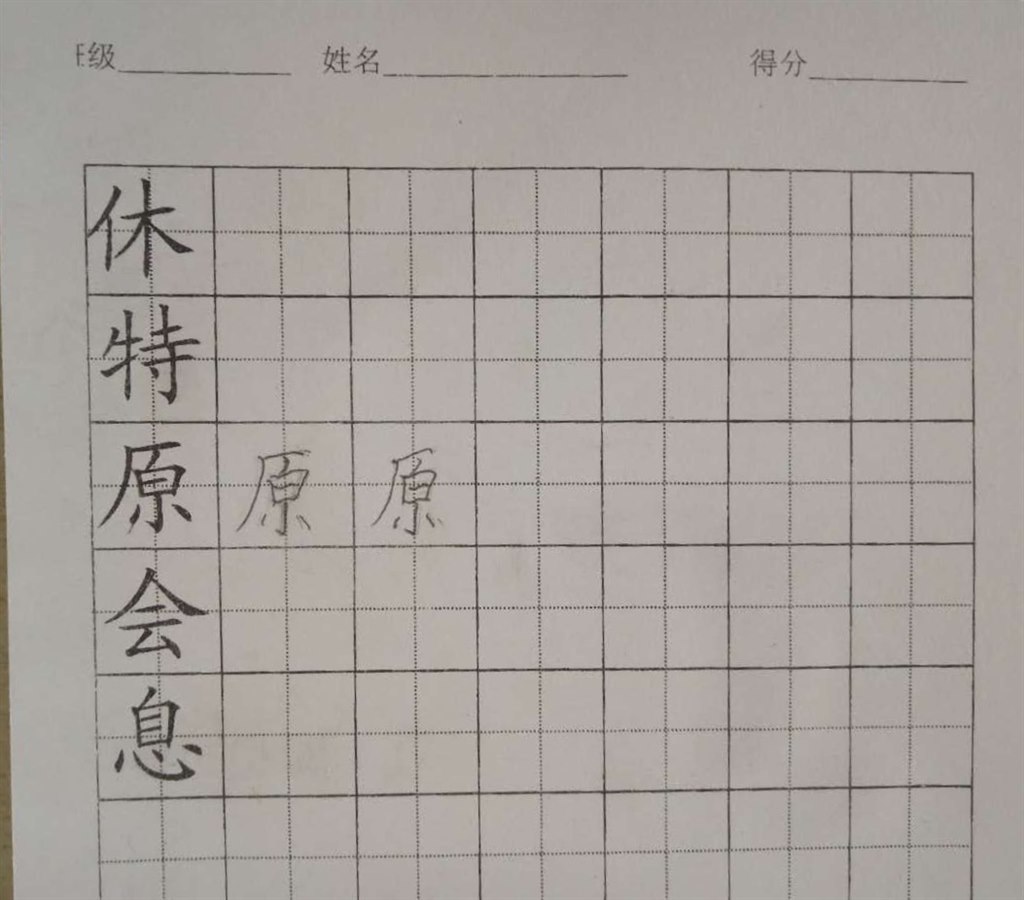 级 姓名 得分
休
特
原 原 原
会
息